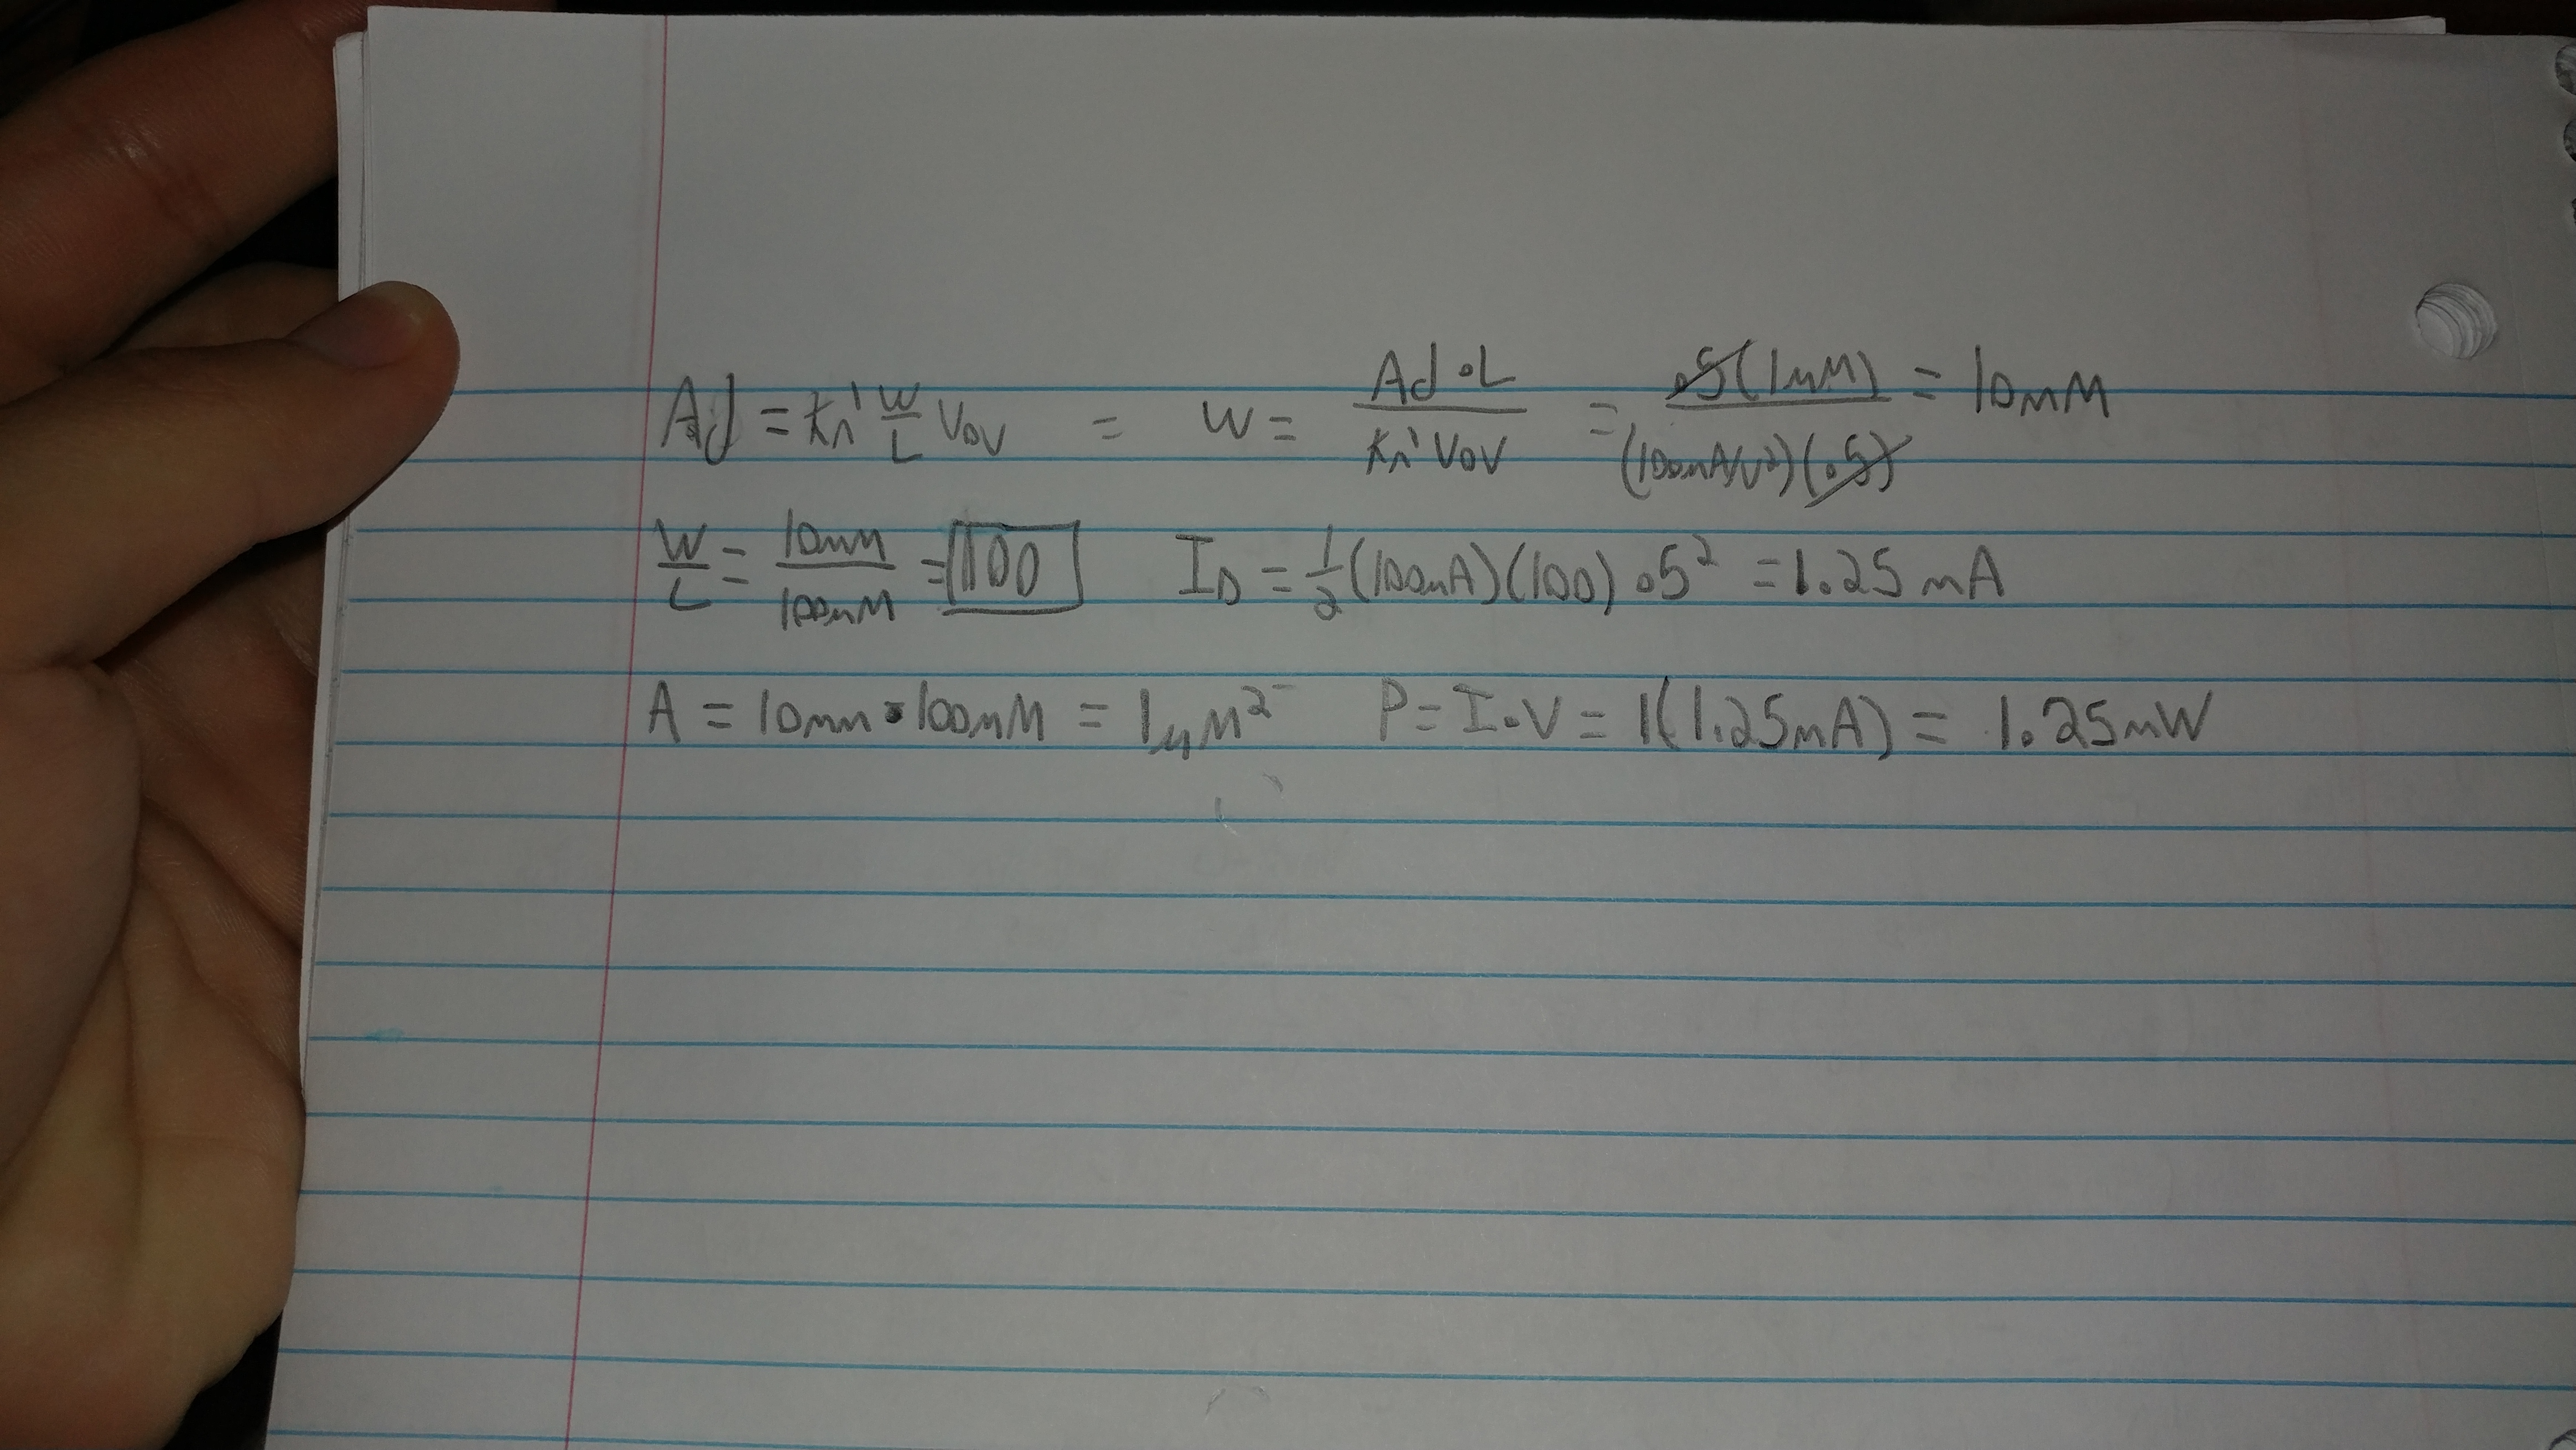 Ad = kn' W/L Vov = W = Ad • L / kn' Vov = .5(1uM) / (100uA/V²)(.5) = 10uM
W/L = 10uM / 100nM = 100 ID = 1/2 (100uA)(100) .5² = 1.25 mA
A = 10um • 100nM = 1uM² P = I • V = 1(1.25mA) = 1.25mW